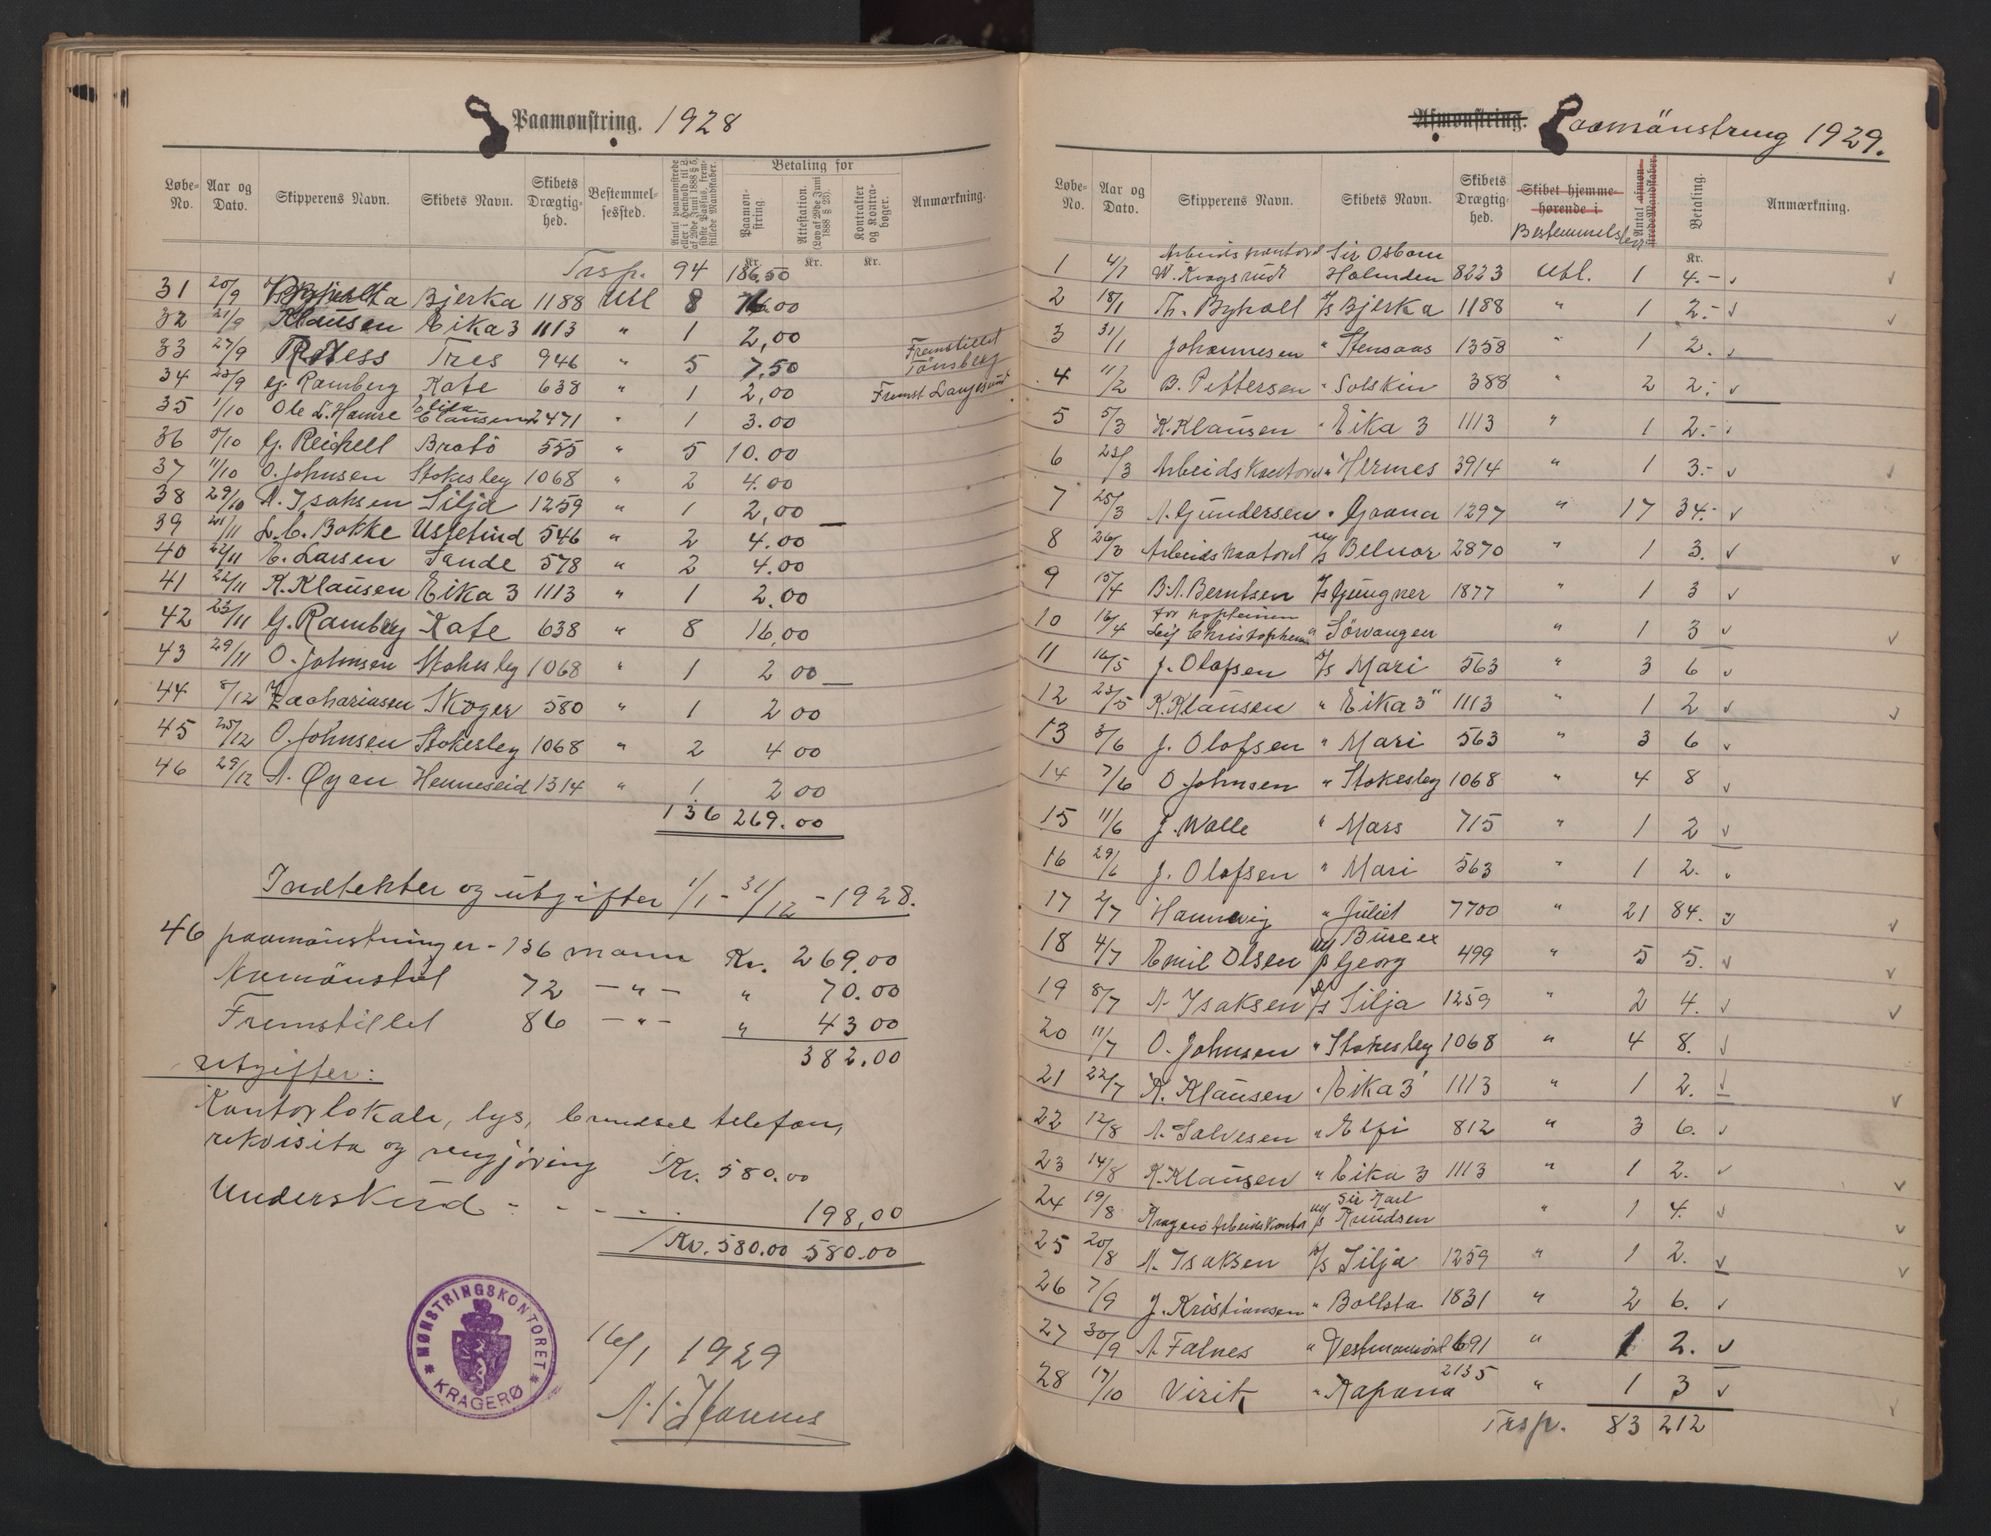 Paamønstring. 1928
Løbe-No. Aar og Dato. Skipperens Navn. Skibets Navn. Skibets Drægtighed. Bestemmelsessted. Antal paamønstrede eller i Henhold til § 2 af 20de Juni 1888 § 5, sidste Passus, fremstillede Mandskaber. Betaling for Paamønstring. Attestation. (Lov af 20de Juni 1888 § 28). Kontrakter og Kontrabøger. Anmærkning.
Kr. Kr. Kr.
Trsp. 94 186,50
31 20/9 Byholt Bjerka 1188 Utl 8 16.00
32 21/9 Klausen Eika 3 1113 " 1 2,00
33 27/9 Tres 946 " 5 7.50 Fremstillet Tønsberg
34 25/9 Gj. Ramberg Kate 638 " 1 2,00 Fremst Langesund
35 1/10 Ole L. Hamre Elisa Clausen 2471 " 1 3.00
36 5/10 G. Reichelt Bratö 555 " 5 10.00
37 11/10 O. Johnsen Stokesley 1068 " 2 4.00
38 29/10 A. Isaksen Silja 1259 " 1 2,00
39 21/11 L. C. Bakke Ustetind 546 " 2 4.00
40 22/11 E. Larsen Sande 578 " 2 4.00
41 22/11 K. Klausen Eika 3 1113 " 1 2.00
42 23/11 G. Ramberg Kate 638 " 8 16,00
43 29/11 O. Johnsen Stokesley 1068 " 1 2 00
44 8/12 Zachariasen Skoger 580 " 1 2 00
45 25/12 O. Johnsen Stokesley 1068 " 2 4 00
46 29/12 A. Øyan Henneseid 1314 " 1 2 00
136 269.00
Indtekter og utgifter 1/1 - 31/12 - 1928.
46 paamönstringer - 136 mann Kr. 269.00
Avmönstret 72 - " - " 70.00
Fremstillet 86 - " - " 43 00
382.00
Utgifter:
Kontorlokale, lys, brendsel telefon,
rekvisita og rengjöring Kr. 580.00
Underskud - - - - 198,00
Kr. 580.00 580.00
MØNSTRINGSKONTORET
* KRAGERØ *
16/1 1929
Afmønstring. Paamönstring 1929.
Løbe-No. Aar og Dato. Skipperens Navn. Skibets Navn. Skibets Drægtighed. Skibet hjemmehørende i Bestemmelsessted Antal afmønstrede Mandskaber. Betaling. Anmærkning.
Kr.
1 4/1 Arbeidskontoret W. Kragsrudt Sir Osborn Holmden 8223 Utl. 1 4.- v
2 18/1 Th. Byholt S/s Bjerka 1188 " 1 2.- v
3 31/1 Johannesen " Stensaas 1358 " 1 2. v
4 11/2 B. Pettersen " Solskin 388 " 2 2.- v
5 5/3 K. Klausen " Eika 3 1113 " 1 2.- v
6 23/3 Arbeidskontoret " Hermes 3914 " 1 3.- v
7 25/3 A. Gundersen " Goana 1297 " 17 34.- v
8 26/3 Arbeidskontoret M/s Belnor 2870 " 1 3. v
9 15/4 B. A. Berntsen S/s Gungner 1877 " 1 3 v
10 16/4 for kapteinen Leif Christophersen " Sörvangen " 1 3 v
11 16/5 J. Olafsen S/s Mari 563 " 3 6 v
12 23/5 K. Klausen " Eika 3" 1113 " 1 2 v
13 3/6 J. Olafsen " Mari 563 " 3 6 v
14 7/6 O Johnsen " Stokesley 1068 " 4 8 v
15 11/6 J. Walle " Mars 715 " 1 2 v
16 29/6 J. Olafsen " Mari 563 " 1 2. v
17 2/7 Hannevig " Juliet 7700 " 21 84. v
18 4/7 Emil Olsen Georg 499 " 5 5. v
19 8/7 A. Isaksen S/s Silja 1259 " 2 4. v
20 11/7 O. Johnsen " Stokesley 1068 " 4 8. v
21 22/7 K. Klausen " Eika 3 1113 " 1 2. v
22 12/8 A. Salvesen " Elfi 812 " 3 6. v
23 14/8 K. Klausen " Eika 3 1113 " 1 2. v
24 19/8 Kragerö Arbeidskontor M/s Sir Karl Knudsen " 1 4. v
25 20/8 A. Isaksen S/s Silja 1259 " 1 2. v
26 7/9 J. Kristiansen " Bollsta 1831 " 2 6. v
27 30/9 A. Falnes " Vestmanröd 691 " 1 2. v
28 17/10 Virik " Kapana 2135 " 1 3 v
Trsp. 83 212